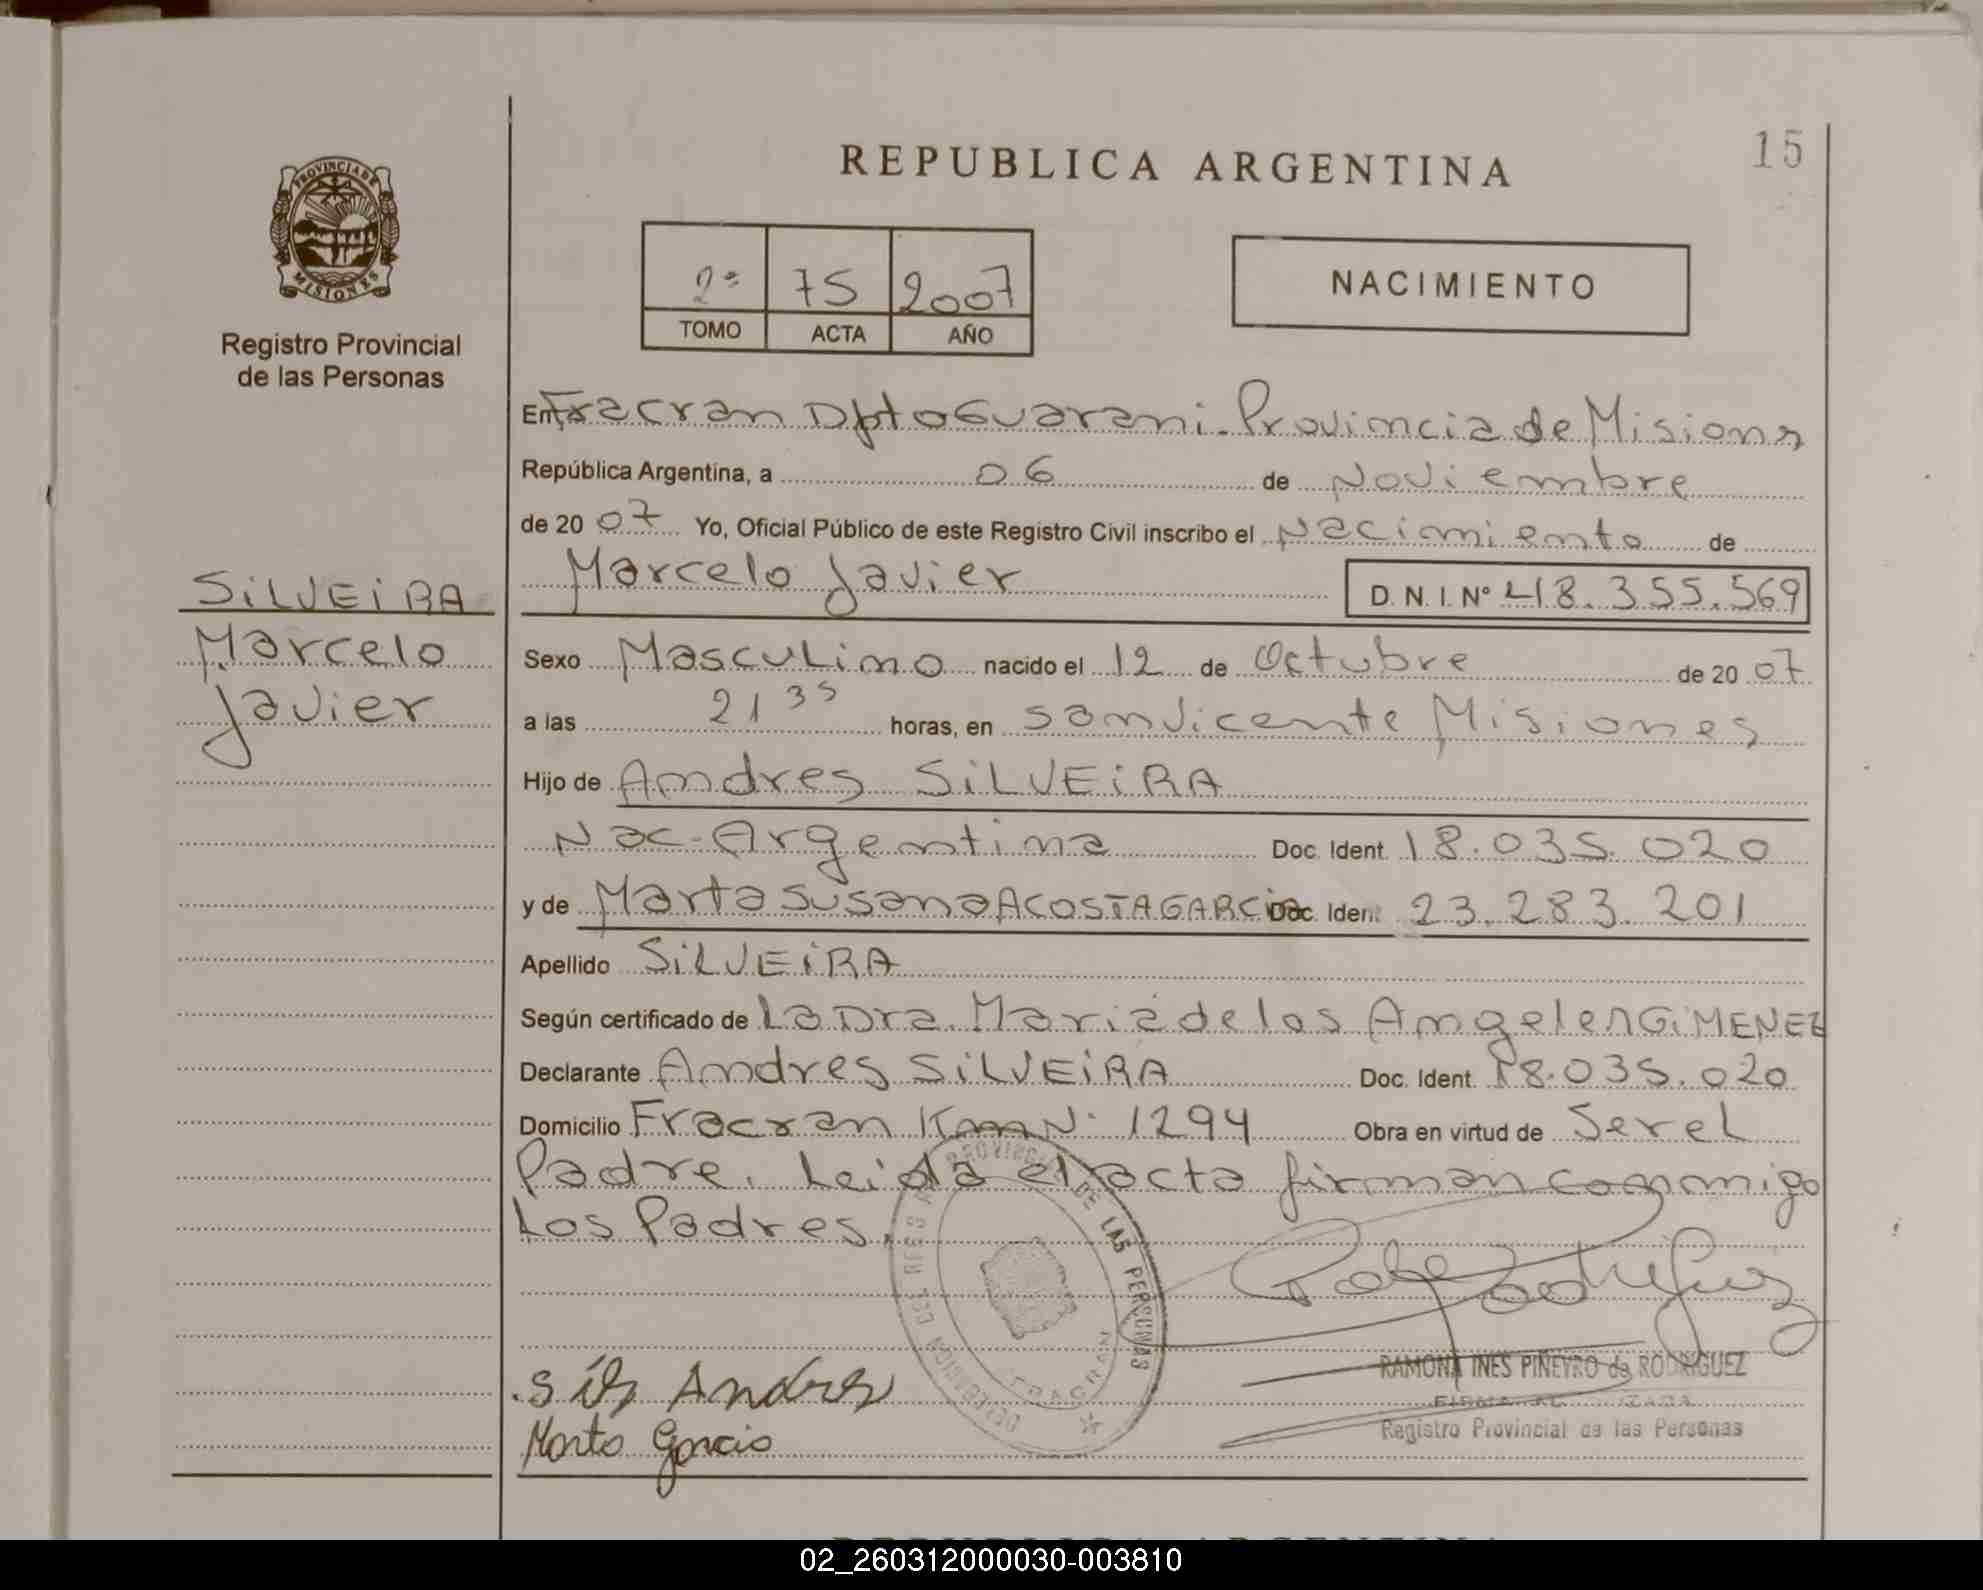 15
REPUBLICA ARGENTINA
PROVINCIA DE
MISIONES
Registro Provincial
de las Personas
2ª 75 2007
TOMO ACTA AÑO
NACIMIENTO
En Fracran Dpto Guarani. Provincia de Misiones
República Argentina, a 06 de Noviembre
de 2007 Yo, Oficial Público de este Registro Civil inscribo el Nacimiento de
Marcelo Javier D.N.I. Nº 48.355.569
SILVEIRA
Marcelo
Javier
Sexo Masculino nacido el 12 de Octubre de 2007
a las 21 35 horas, en San Vicente Misiones
Hijo de Andres SILVEIRA
Nac. Argentina Doc. Ident. 18.035.020
y de Marta Susana ACOSTA GARCIA Doc. Ident. 23.283.201
Apellido SILVEIRA
Según certificado de La Dra. Maria de los Angeles GIMENEZ
Declarante Andres SILVEIRA Doc. Ident. 18.035.020
Domicilio Fracran Km Nº 1294 Obra en virtud de Ser el
Padre. Leida el acta firman conmigo
Los Padres.
PROVINCIAL DE LAS PERSONAS
DELEGACION
FRACRAN
RAMONA INES PIÑEYRO de RODRIGUEZ
Registro Provincial de las Personas
Andres
Marta Garcia
02_260312000030-003810